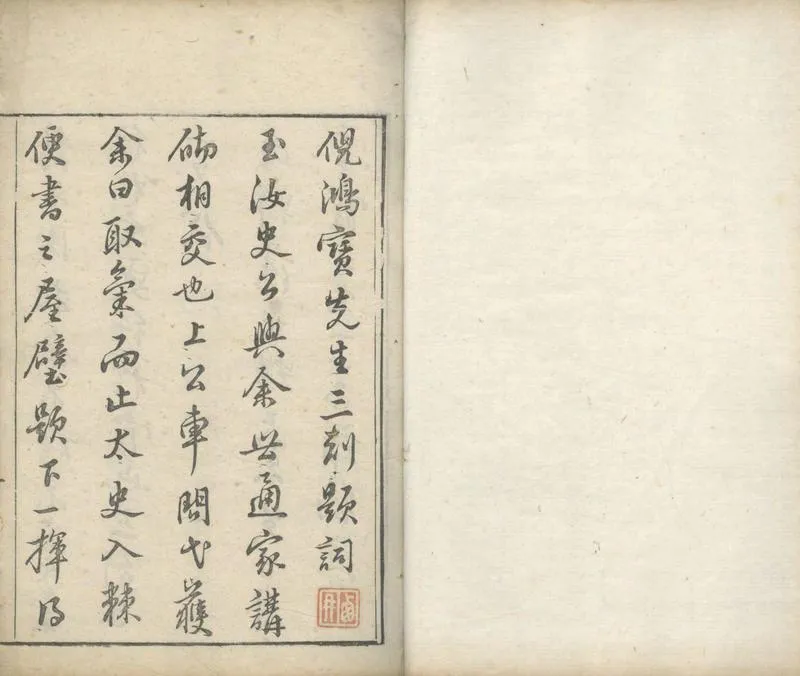 倪鴻寶先生三刻題詞
玉汝史公與余世通家講
硎相交也上公車問弋獲
余曰取氣而止太史入棘
便書之屋壁題下一揮得